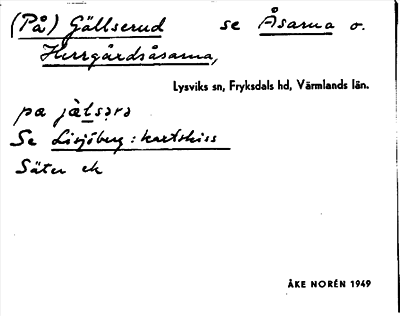 (På) Gällserud se Åsarna o.
Herrgårdsåsarna,
Lysviks sn, Fryksdals hd, Värmlands län.
pa jàlsərə
Se Lisjöberg : kartskiss
Säter ek
ÅKE NORÉN 1949